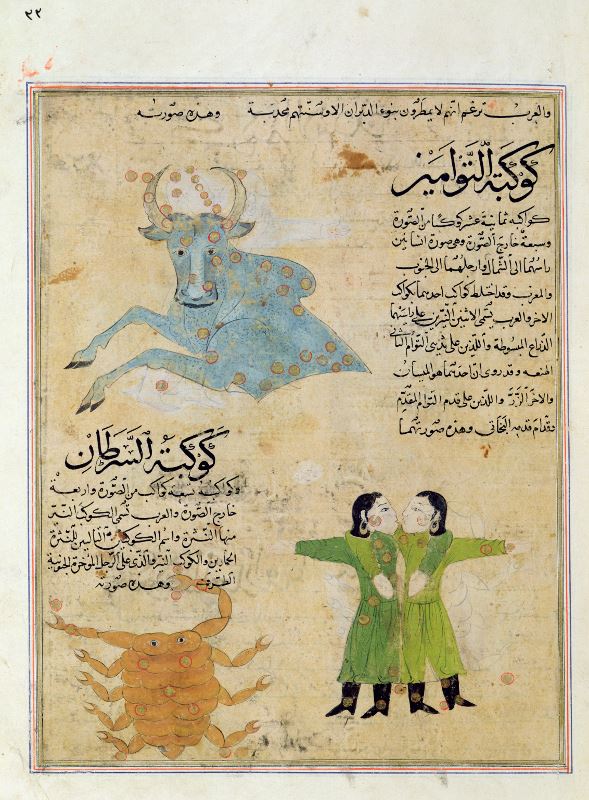 ٣٢
والعرب تزعم انهم لا يمطرون بنوء الدبران الا وسنتهم مجدبة وهذه صورته
كوكبة التوامين
كواكبه ثمانية عشر كوكبا من الصورة
وسبعة خارج الصورة وهي صورة انسانين
راسهما الى الشمال وارجلهما الى الجنوب
والمغرب وقد اختلط كواكب احدهما بكواكب
الاخر والعرب تسمى الاثنين النيرين على راسهما
الذراع المبسوطة واللذين على ثديي التوام الثاني
الهنعه وقد روى ان احدهما هو الميسان
والاخر الزر واللذين على قدم التوام المقدم
وقدام قدمه البخاتي وهذه صورتهما
كوكبة السرطان
وكواكبه تسعه كواكب من الصورة واربعة
خارج الصورة والعرب تسمى الكوكب النير
منها النثرة واسم الكوكبين التاليين للنثرة
الحمارين والكوكب النير والذى على الرجل الموخرة الجنوبية
الطرف وهذه صورته